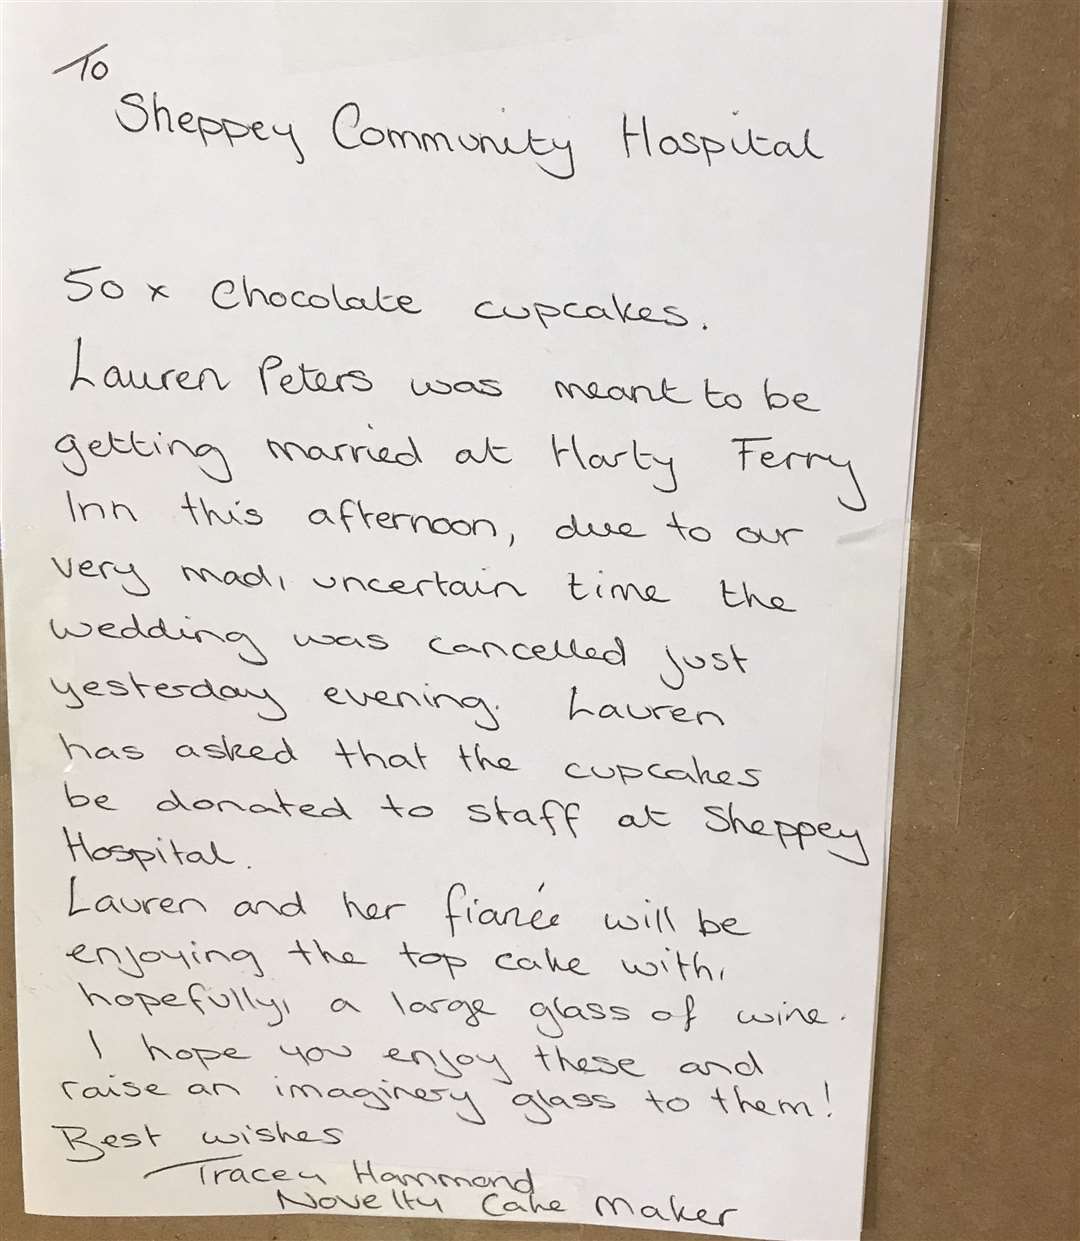 To
Sheppey Community Hospital
50 x Chocolate cupcakes.
Lauren Peters was meant to be
getting married at Harty Ferry
Inn this afternoon, due to our
very mad, uncertain time the
wedding was cancelled just
yesterday evening. Lauren
has asked that the cupcakes
be donated to staff at Sheppey
Hospital.
Lauren and her fianée will be
enjoying the top cake with,
hopefully, a large glass of wine.
I hope you enjoy these and
raise an imaginery glass to them!
Best wishes
Tracey Hammond
Novelty Cake Maker